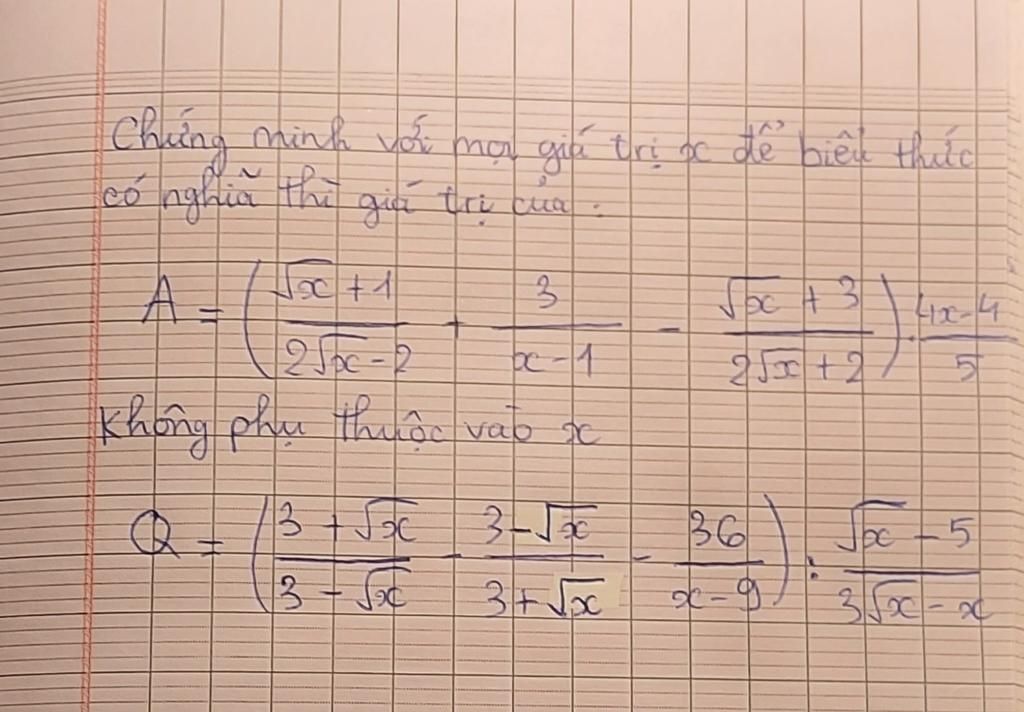 Chứng minh với mọi giá trị x để biểu thức
có nghĩa thì giá trị của :
A = ( (√x + 1)/(2√x - 2) + 3/(x - 1) - (√x + 3)/(2√x + 2) ) . (4x - 4)/5
Không phụ thuộc vào x
Q = ( (3 + √x)/(3 - √x) - (3 - √x)/(3 + √x) - 36/(x - 9) ) : (√x - 5)/(3√x - x)